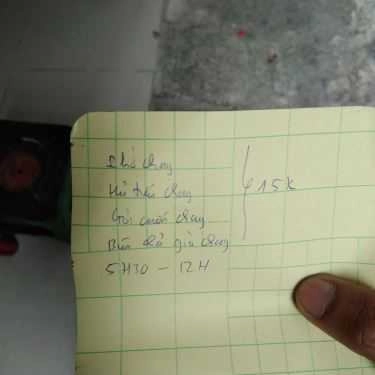 Phở chay
Hủ tiếu chay 15k
Gỏi cuốn chay
Bún chả giò chay
5H30 – 12H